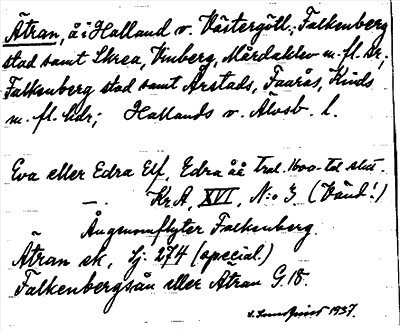 Ätran, å: Halland o. Västergötl.; Falkenberg
stad samt Skrea, Vinberg, Mårdaklev m. fl. snr,
Falkenberg stad samt Årstads, Faurås, Kinds
m. fl. hdr; Hallands o. Älvsb. l.
Eva eller Edra Elf, Edra åå trol. 1600-tal slut.
— Kr. A, XVI, N:o 3. (Vänd!)
" Ån genomflyter Falkenberg.
Ätran sk, Lj. 274 (special.)
Falkenbergsån eller Ätran G. 18.
1937.